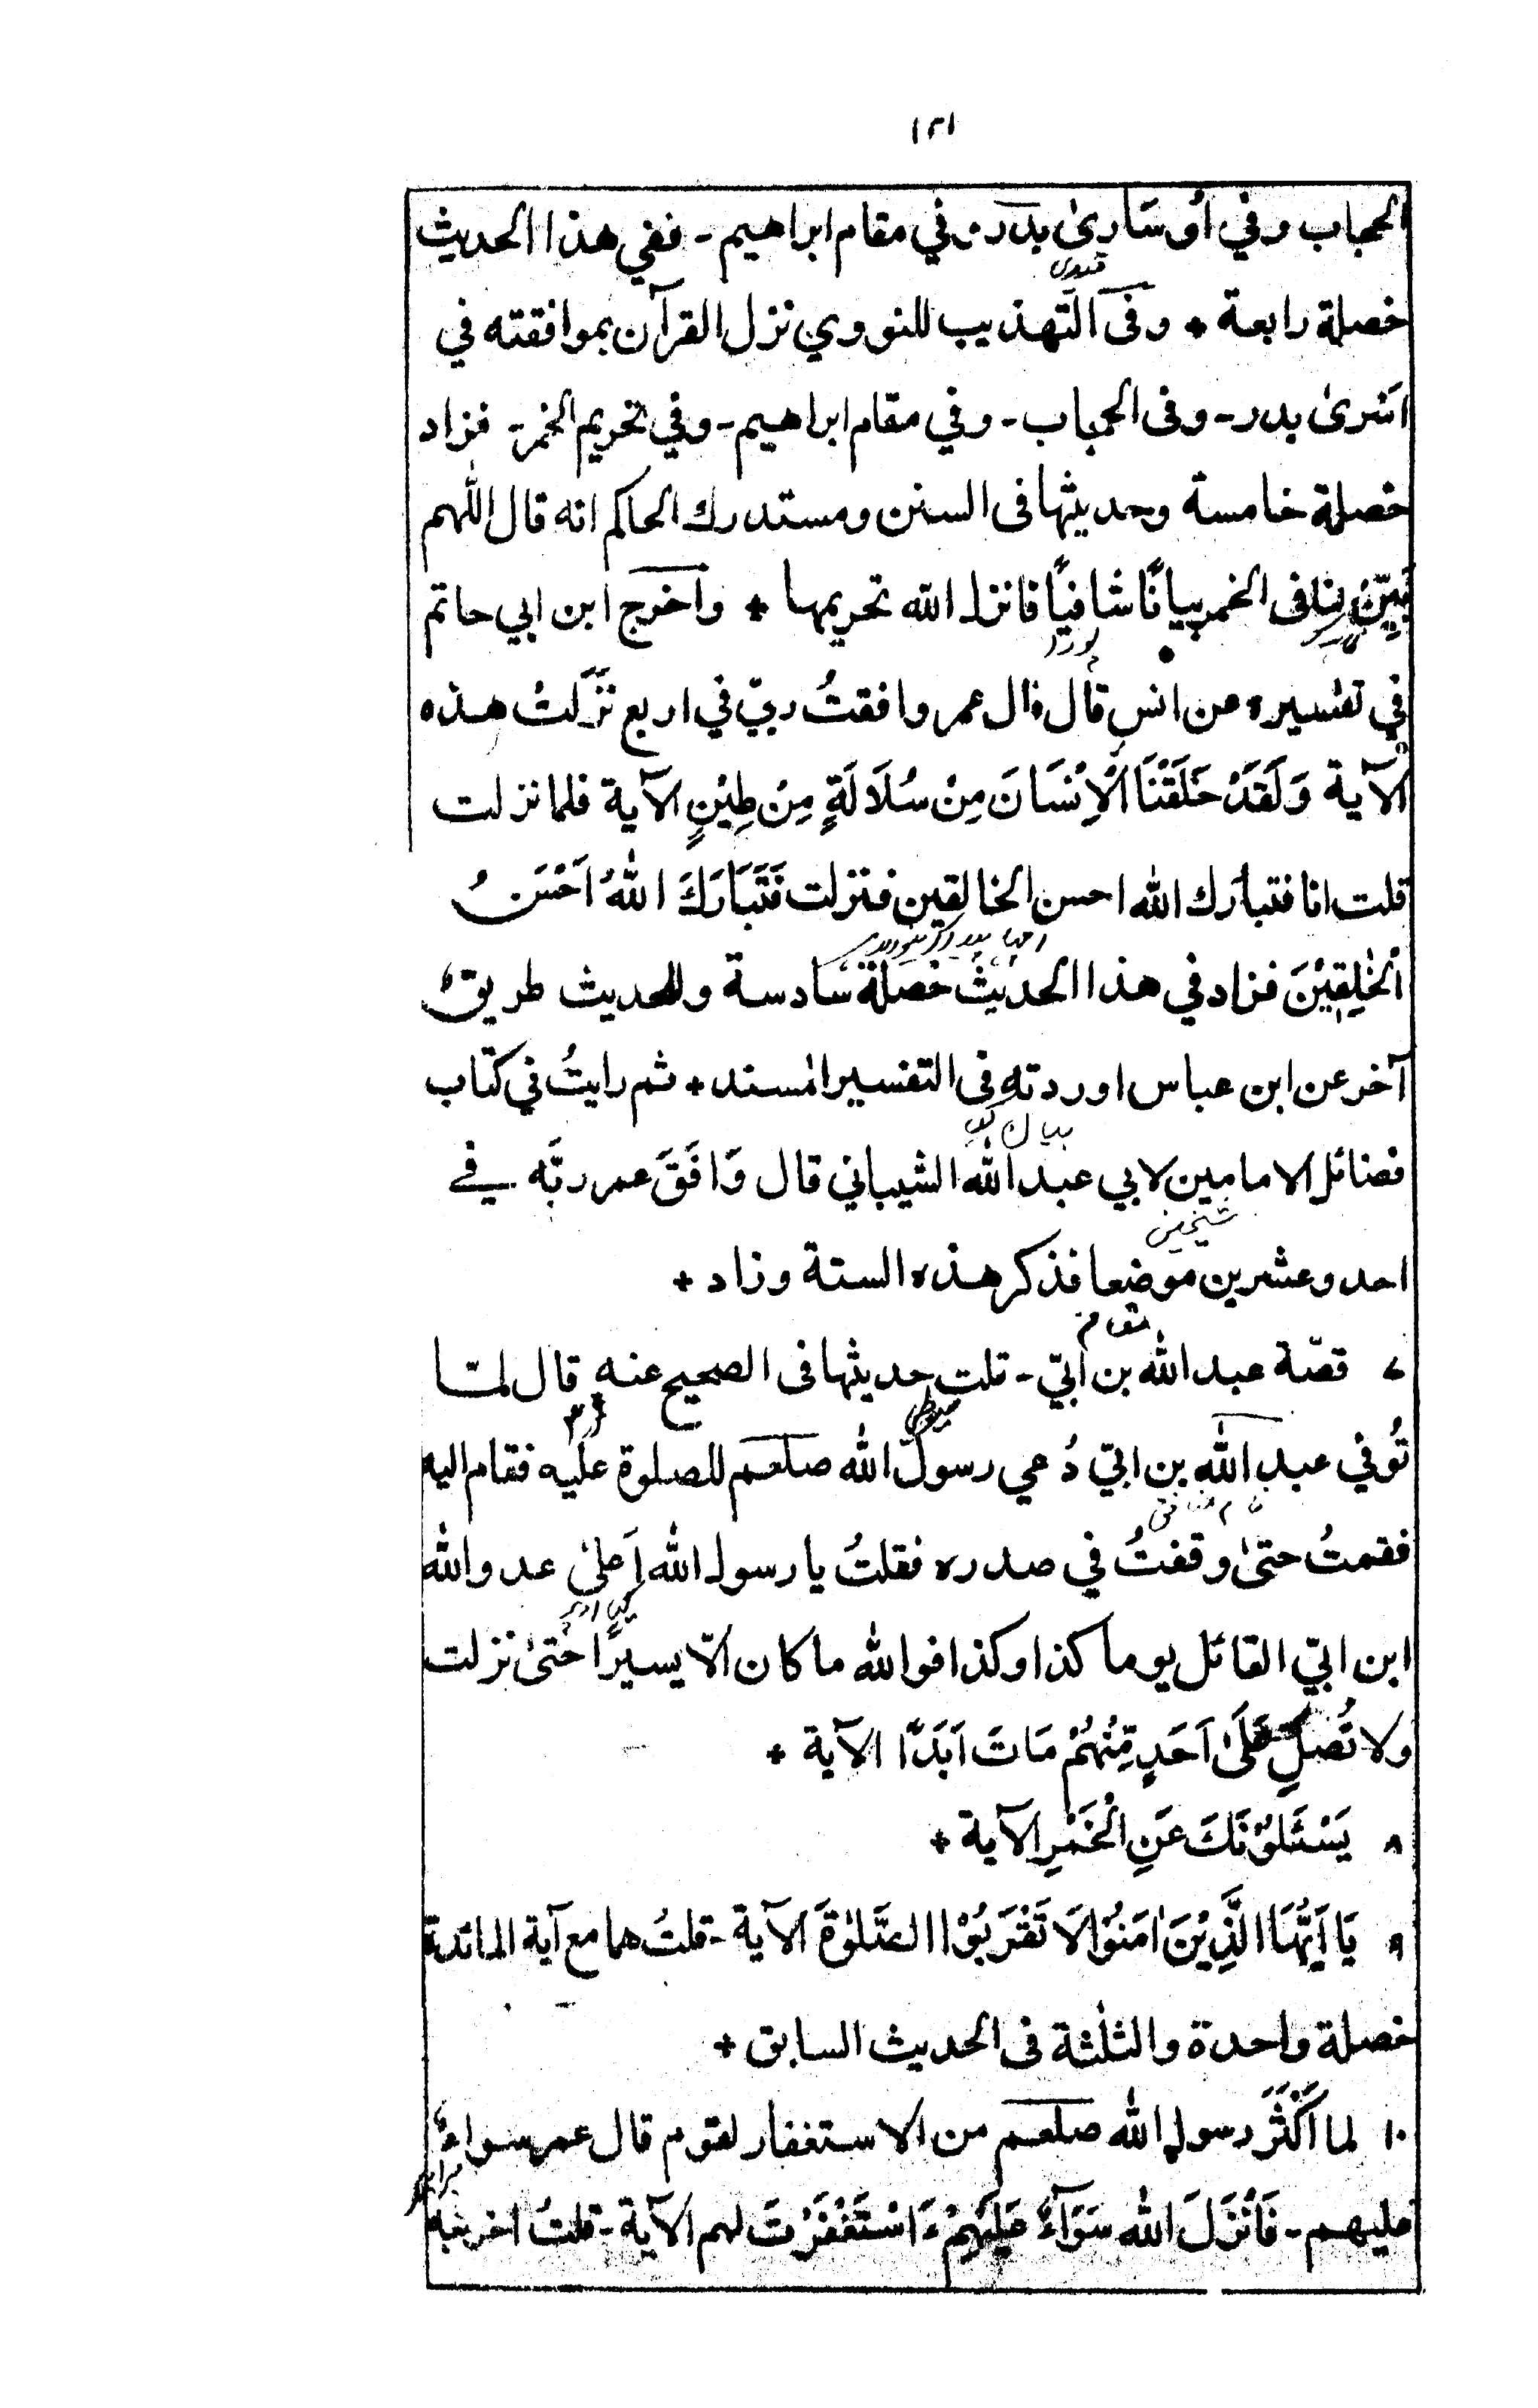 ١٢١
الحجاب وفي أُسَارىٰ بدر وفي مقام ابراهيم - ففي هذا الحديث
قیدی
خصلة رابعة + وفى التهذيب للنووي نزل القرآن بموافقته في
اَسرىٰ بدر - وفى الحجاب - وفي مقام ابراهيم - وفي تحريم الخمر - فزاد
خصلة خامسة وحديثها فى السنن ومستدرك الحاكم انه قال اللّٰهم
بَيِّنْ لنا فى الخمر بيانًا شافيًا فانزل الله تحريمها + واخرج ابن ابي حاتم
في تفسيره عن انس قال قال عمر وافقتُ ربيّ في اربع نَزَلتْ هذه
الآية وَلَقَدْ خَلَقْنَا الْاِنْسَانَ مِنْ سُلَالَةٍ مِنْ طِيْنٍ الآية فلما نزلت
قلت انا فتبارك الله احسن الخالقين فنزلت فَتَبَارَكَ اللّٰهُ اَحْسَنُ
الْخٰلِقِيْنَ فزاد في هذا الحديث خصلة سادسة وللحديث طريقٌ
آخر عن ابن عباس اوردته فى التفسير المسند + ثم رايتُ في كتاب
فضائل الامامين لابي عبد الله الشيباني قال وَافَقَ عمر ربَّه في
شیخین
احد وعشرين موضعا فذكر هذه الستة وزاد +
مقام
٧ قصّة عبد الله بن ابيّ - قلت حديثها فى الصحيح عنه قال لمّا
سیوطی
تُوفي عبد الله بن ابيّ دُعي رسول الله صلعم للصلوة عليه فقام اليه
نام منافق
فقمتُ حتىٰ وقفتُ في صدره فقلتُ يا رسول الله اَعلىٰ عدو الله
ابن ابيّ القائل يوما كذا وكذا فوالله ما كان الّا يسيرًا حتىٰ نزلت
ولا تُصَلِّ عَلَىٰ اَحَدٍ مِّنْهُمْ مَاتَ اَبَدًا الآية +
٨ يَسْئَلُوْنَكَ عَنِ الْخَمْرِ الآية +
٩ يَا اَيُّهَا الَّذِيْنَ اٰمَنُوْا لَا تَقْرَبُوْا الصَّلٰوةَ الآية - قلتُ هما مع آية المائدة
خصلة واحدة والثلٰثة فى الحديث السابق +
١٠ لما اَكْثَرَ رسول الله صلعم من الاستغفار لقوم قال عمر سواءٌ
عليهم - فَاَنْزَلَ الله سَوَآءٌ عَلَيْهِمْ ءَاَسْتَغْفَرْتَ لهم الآية - قلتُ اخرجه